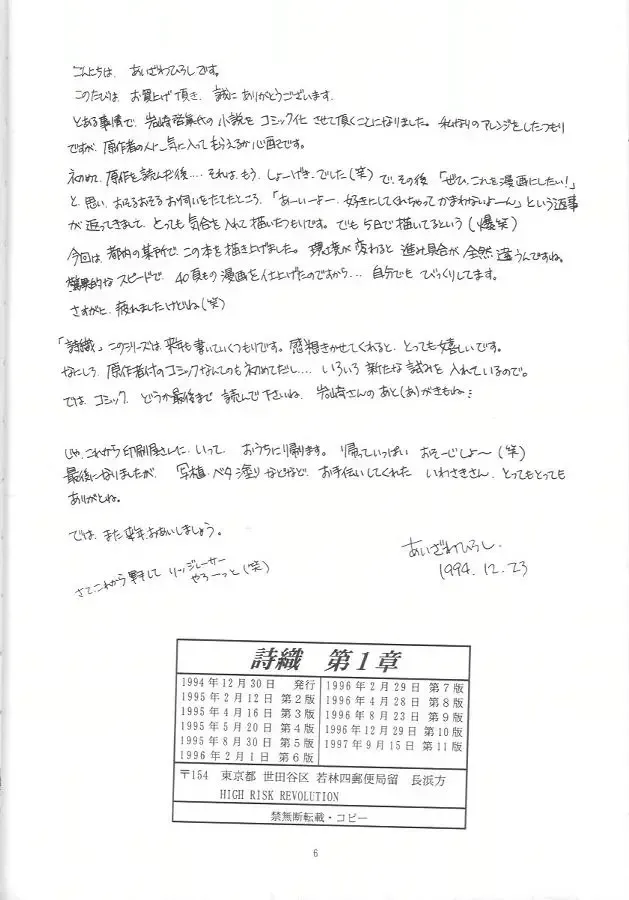 こんにちは、あいざわひろしです。
このたびは、お買上げ頂き、誠にありがとうございます。
とある事情で、岩崎啓眞代の小説をコミック化させて頂くことになりました。私なりのアレンジをしたつもり
ですが、原作者の人に気に入ってもらえるか心配です。
初めて、原作を読んだ後‥‥それは、もう、しょーげき、でした(笑)で、その後「ぜひ、これを漫画にしたい!」
と、思い、おそるおそるお伺いをたてたところ、「あーいーよー、好きにしてくれちゃってかまわないよーん」という返事
が返ってきまして、とっても気合を入れて描いたつもりです。でも5日で描いてるという(爆笑)
今回は、都内の某所で、この本を描き上げました。環境が変わると、進み具合が全然違うんですね。
驚異的なスピードで、40頁もの漫画を仕上げたのですから‥‥自分でも、びっくりしてます。
さすがに、疲れましたけどね(笑)
「詩織」このシリーズは、来年も書いていくつもりです。感想きかせてくれると、とっても嬉しいです。
なにしろ、原作者付のコミックなんてのも初めてだし‥‥いろいろ新たな試みを入れているので。
では、コミック、どうか最後まで読んで下さいね、岩崎さんのあと(あ)がきもね‥
じゃ、これから印刷屋さんに、いって、おうちに帰ります。帰っていっぱい おそーじしよ〜(笑)
最後になりましたが、写植・ベタ塗りなどなど、お手伝いしてくれた いわさきさん、とってもとっても
ありがとね。
では、また来年、おあいしましょう。
さて、これから リッジレーサー
やろーっと(笑)
あいざわひろし.
1994.12.23
詩織 第1章
1994年12月30日 発行
1995年2月12日 第2版
1995年4月16日 第3版
1995年5月20日 第4版
1995年8月30日 第5版
1996年2月1日 第6版
1996年2月29日 第7版
1996年4月28日 第8版
1996年8月23日 第9版
1996年12月29日 第10版
1997年9月15日 第11版
〒154 東京都 世田谷区 若林四郵便局留 長浜方
HIGH RISK REVOLUTION
禁無断転載・コピー
6